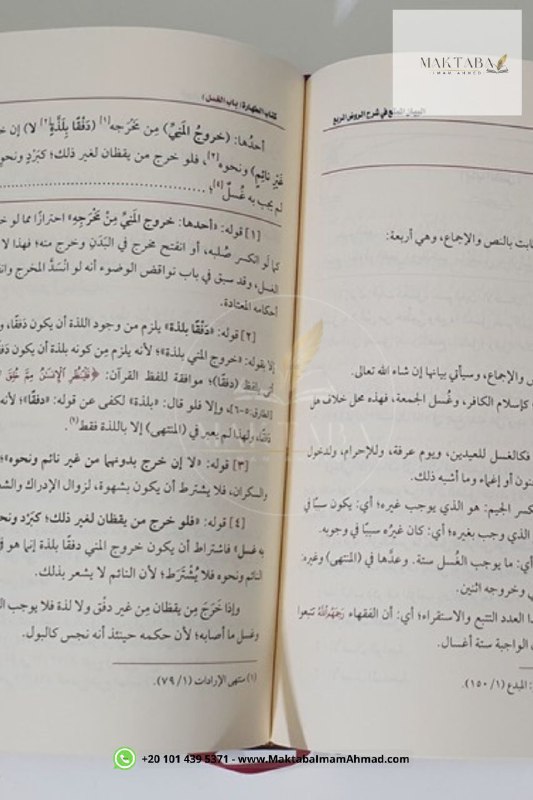 MAKTABA
IMAM AHMED
البيان الممتع في شرح الروض المربع
ابت بالنص والإجماع، وهي أربعة:
ص والإجماع، وسيأتي بيانها إن شاء الله تعالى.
ب كإسلام الكافر، وغُسل الجمعة، فهذه محل خلاف هل
فكالغسل للعيدين، ويوم عرفة، وللإحرام، ولدخول
نون أو إغماء، وما أشبه ذلك.
كسر الجيم: هو الذي يوجب غيره؛ أي: يكون سببًا في
الذي وجب بغيره؛ أي: كان غيره سببًا في وجوبه.
أي: ما يوجب الغُسل ستة. وعدَّها في (المنتهى) وغيره:
ي وخروجه اثنين.
ا العدد التتبع والاستقراء؛ أي: أن الفقهاء رَحِمَهُمُاللَّهُ تتبعوا
الواجبة ستة أغسال.
: المبدع (١/ ١٥٠).
كتاب الطهارة / باب الغسل /
أحدُها: (خروجُ المَنِيِّ) مِن مَخْرَجِه [١] (دَفْقًا بِلَذَّةٍ [٢] لا) إن خـ
غَيْرِ نَائِمٍ) ونحوِه [٣]، فلو خرج من يقظان لغير ذلك؛ كبَرْدٍ ونحو
لم يجب به غُسلٌ [٤]؛
[١] قوله: «أحدها: خروج المَنيِّ مِنْ مَخْرَجِهِ» احترازًا مما لو خر
كما لَو انكسر صُلبه، أو انفتح مخرج في البَدَنِ وخرج منه؛ فهذا لا
الغسل، وقد سبق في باب نواقض الوضوء أنه لو انْسَدَّ المخرج وانف
أحكامه المعتادة.
[٢] قوله: «دَفْقًا بلذة» يلزم من وجود اللذة أن يكون دَفْقًا، و
إلا بقوله: «خروج المني بلذة»؛ لأنه يلزم مِن كونه بلذة أن يكون دَفـ
بلفظ (دفقًا)؛ موافقة للفظ القرآن: ﴿فَلْيَنظُرِ الْإِنسَانُ مِمَّ خُلِقَ
[الطارق: ٥-٦]، وإلا فلو قال: «بلذة» لكفى عن قوله: «دفقًا»؛ لأنه
ولهذا لم يعبر في (المنتهى) إلا باللذة فقط (١).
[٣] قوله: «لا إن خرج بدونهما من غير نائم ونحوه»؛
والسكران، فلا يشترط أن يكون بشهوة، لزوال الإدراك والشـ
[٤] قوله: «فلو خرج من يقظان لغير ذلك؛ كبَرْد ونحـ
به غسل» فاشتراط أن يكون خروج المني دفقًا بلذة إنما هو في
النائم ونحوه فلا يُشْتَرط؛ لأن النائم لا يشعر بذلك.
وإذا خَرَجَ مِن يقظان مِن غير دفْق ولا لذة فلا يوجب الـ
وغسل ما أصابه؛ لأن حكمه حينئذ أنه نجس كالبول.
(١) منتهى الإرادات (١/ ٧٩).
MAKTABA
+20 101 439 5371 - www.MaktabaImamAhmad.com